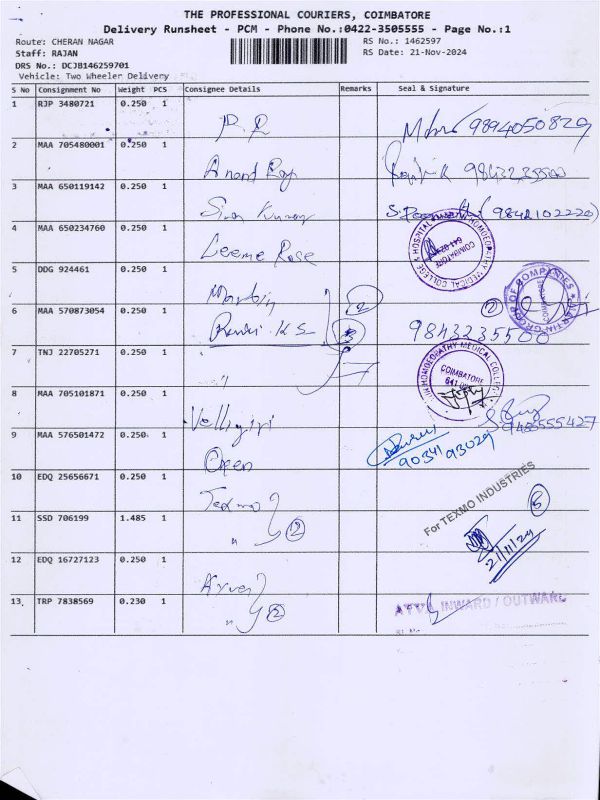 THE PROFESSIONAL COURIERS, COIMBATORE
Delivery Runsheet - PCM - Phone No.:0422-3505555 - Page No.:1
Route: CHERAN NAGAR
RS No.: 1462597
Staff: RAJAN
RS Date: 21-Nov-2024
DRS No.: DCJB146259701
Vehicle: Two Wheeler Delivery
S No Consignment No Weight PCS Consignee Details Remarks Seal & Signature
1 RJP 3480721 0.250 1
9894050829
2 MAA 705480001 0.250 1
Anand
3 MAA 650119142 0.250 1
Siva Kumar (9842102220)
4 MAA 650234760 0.250 1
Leeme Rose
HOSPITAL HOMOEOPATHY MEDICAL COLLEGE & COIMBATORE
5 DDG 924461 0.250 1
Martin 2
GROUP OF COMPANIES
6 MAA 570873054 0.250 1
K.S 3 9843235500
7 TNJ 22705271 0.250 1
"
HOMOEOPATHY MEDICAL COLLEGE COIMBATORE
8 MAA 705101871 0.250 1
Velligiri
9 MAA 576501472 0.250 1
Open 90341 93029
10 EDQ 25656671 0.250 1
Texmo
For TEXMO INDUSTRIES
11 SSD 706199 1.485 1
" 2
21/11/24
12 EDQ 16727123 0.250 1
13. TRP 7838569 0.230 1
" 2
INWARD / OUTWARD